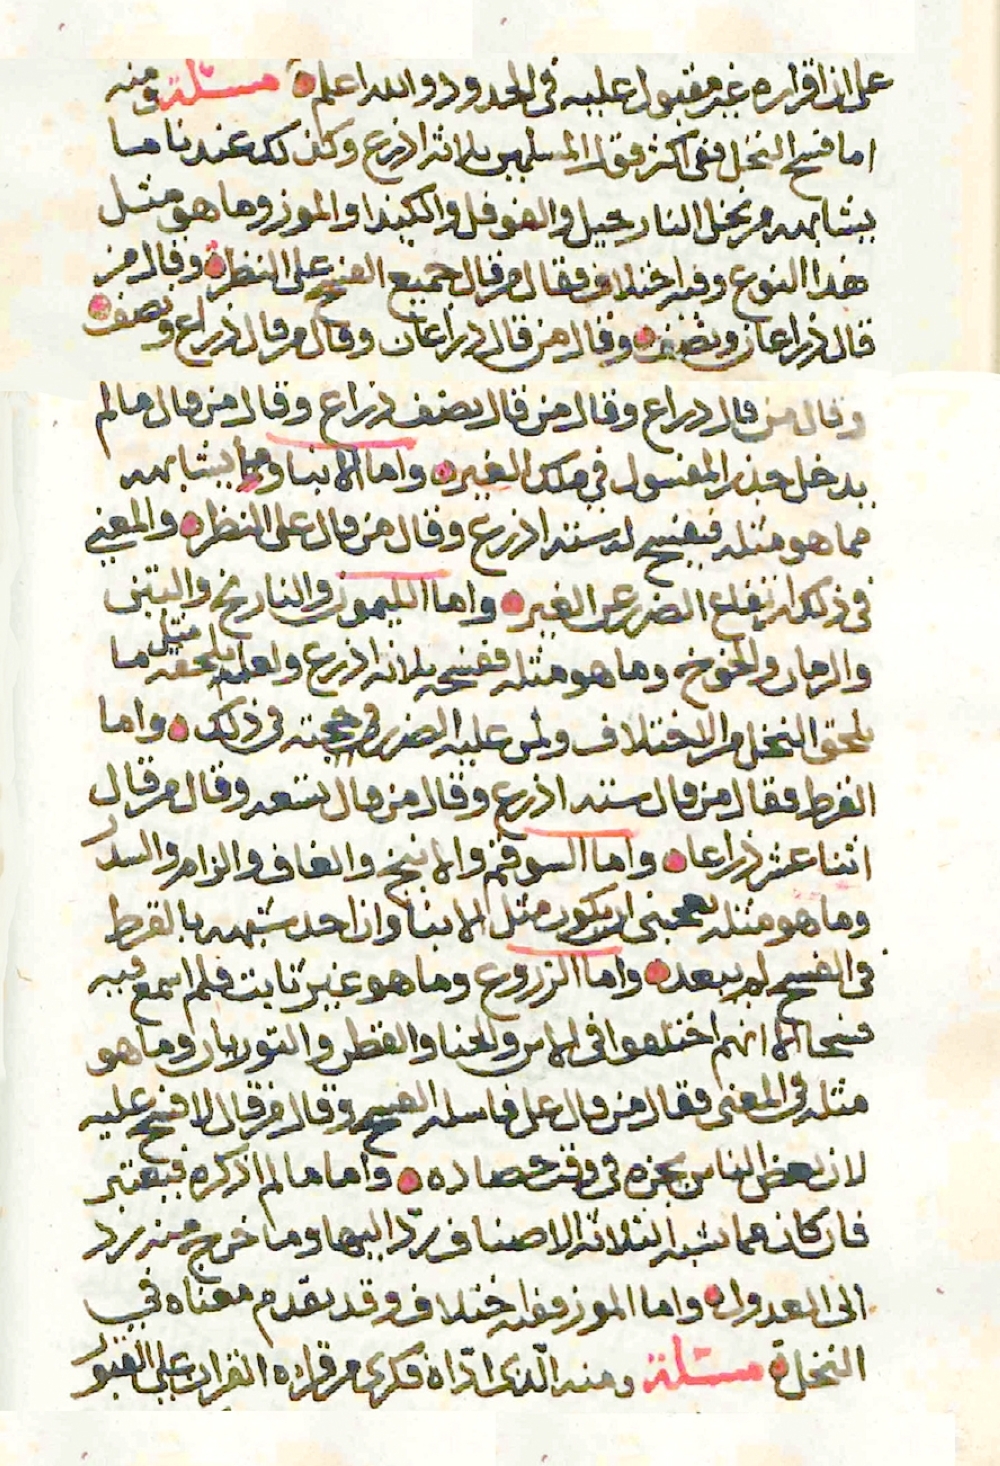 على ان اقراره غير مقبول عليه في الحدود والله اعلم مسئلة ومنه
اما فسح النخل ففي اكثر قول المسلمين ثلاثة اذرع وكذلك عندنا ما
يشابهه من نخل النارجيل والفوفل والكيذا والموز وما هو مثل
هذا النوع وفيه اختلاف فقال من قال جميع الفسح على النظر وقال من
قال ذراعان ونصف وقال من قال ذراعان وقال من قال ذراع ونصف
وقال من قال ذراع وقال من قال نصف ذراع وقال من قال ما لم
يدخل جذر المفسول في ملك الغير واما الانبا وما يشابهه
مما هو مثله فيفسح له ستة اذرع وقال من قال على النظر والمعنى
في ذلك ارتفاع الضرر عن الغير واما الليمون والنارنج والتين
والرمان والخوخ وما هو مثله ففسحه ثلاثة اذرع ولعله يلحقه مثل ما
يلحق النخل من الاختلاف ولمن عليه الضرر حجته في ذلك واما
القرط فقال من قال ستة اذرع وقال من قال تسعة وقال من قال
اثنا عشر ذراعا واما السوقم والانبج والغاف والزام والسدر
وما هو مثله يعجبني ان يكون مثل الانبا وان احد شبهه بالقرط
في الفسح لم يبعد واما الزروع وما هو غير ثابت فلم اسمع فيه
فسحا الا انهم اختلفوا في الاس والحنا والقطن والتوريان وما هو
مثله في المعنى فقال من قال على فاسله الفسح وقال من قال لا فسح عليه
لان بعض الناس يجزه في وقت حصاده واما ما لم اذكره فيعتبر
فان كان مما يشبه الثلاثة الاصناف رد اليها وما خرج منه رد
الى العدول واما الموز ففيه اختلاف وقد تقدم معناه في
النخلة مسئلة ومنه الذي اداه فكري من قراءة القران على القبور